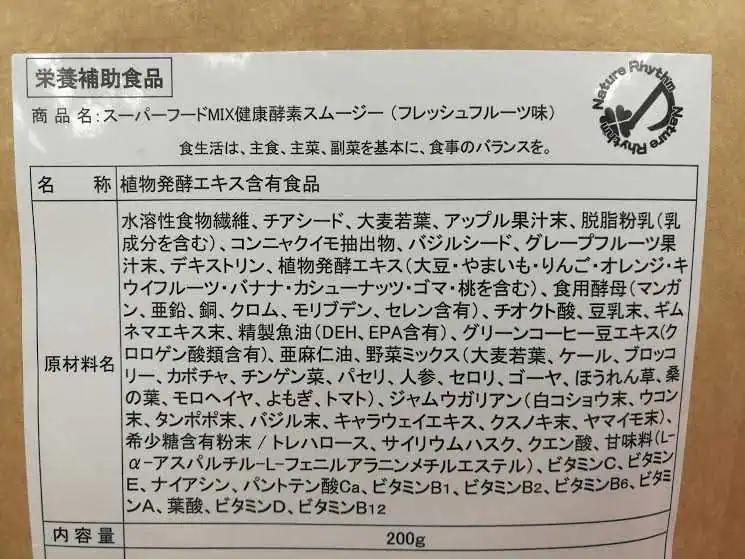 栄養補助食品
Nature Rhythm Nature Rhythm
商品名:スーパーフードMIX健康酵素スムージー(フレッシュフルーツ味)
食生活は、主食、主菜、副菜を基本に、食事のバランスを。
名 称 植物発酵エキス含有食品
原材料名
水溶性食物繊維、チアシード、大麦若葉、アップル果汁末、脱脂粉乳(乳
成分を含む)、コンニャクイモ抽出物、バジルシード、グレープフルーツ果
汁末、デキストリン、植物発酵エキス(大豆・やまいも・りんご・オレンジ・キ
ウイフルーツ・バナナ・カシューナッツ・ゴマ・桃を含む)、食用酵母(マンガ
ン、亜鉛、銅、クロム、モリブデン、セレン含有)、チオクト酸、豆乳末、ギム
ネマエキス末、精製魚油(DEH、EPA含有)、グリーンコーヒー豆エキス(ク
ロロゲン酸類含有)、亜麻仁油、野菜ミックス(大麦若葉、ケール、ブロッコ
リー、カボチャ、チンゲン菜、パセリ、人参、セロリ、ゴーヤ、ほうれん草、桑
の葉、モロヘイヤ、よもぎ、トマト)、ジャムウガリアン(白コショウ末、ウコン
末、タンポポ末、バジル末、キャラウェイエキス、クスノキ末、ヤマイモ末)、
希少糖含有粉末/トレハロース、サイリウムハスク、クエン酸、甘味料(L-
α-アスパルチル-L-フェニルアラニンメチルエステル)、ビタミンC、ビタミン
E、ナイアシン、パントテン酸Ca、ビタミンB1、ビタミンB2、ビタミンB6、ビタミ
ンA、葉酸、ビタミンD、ビタミンB12
内容量 200g